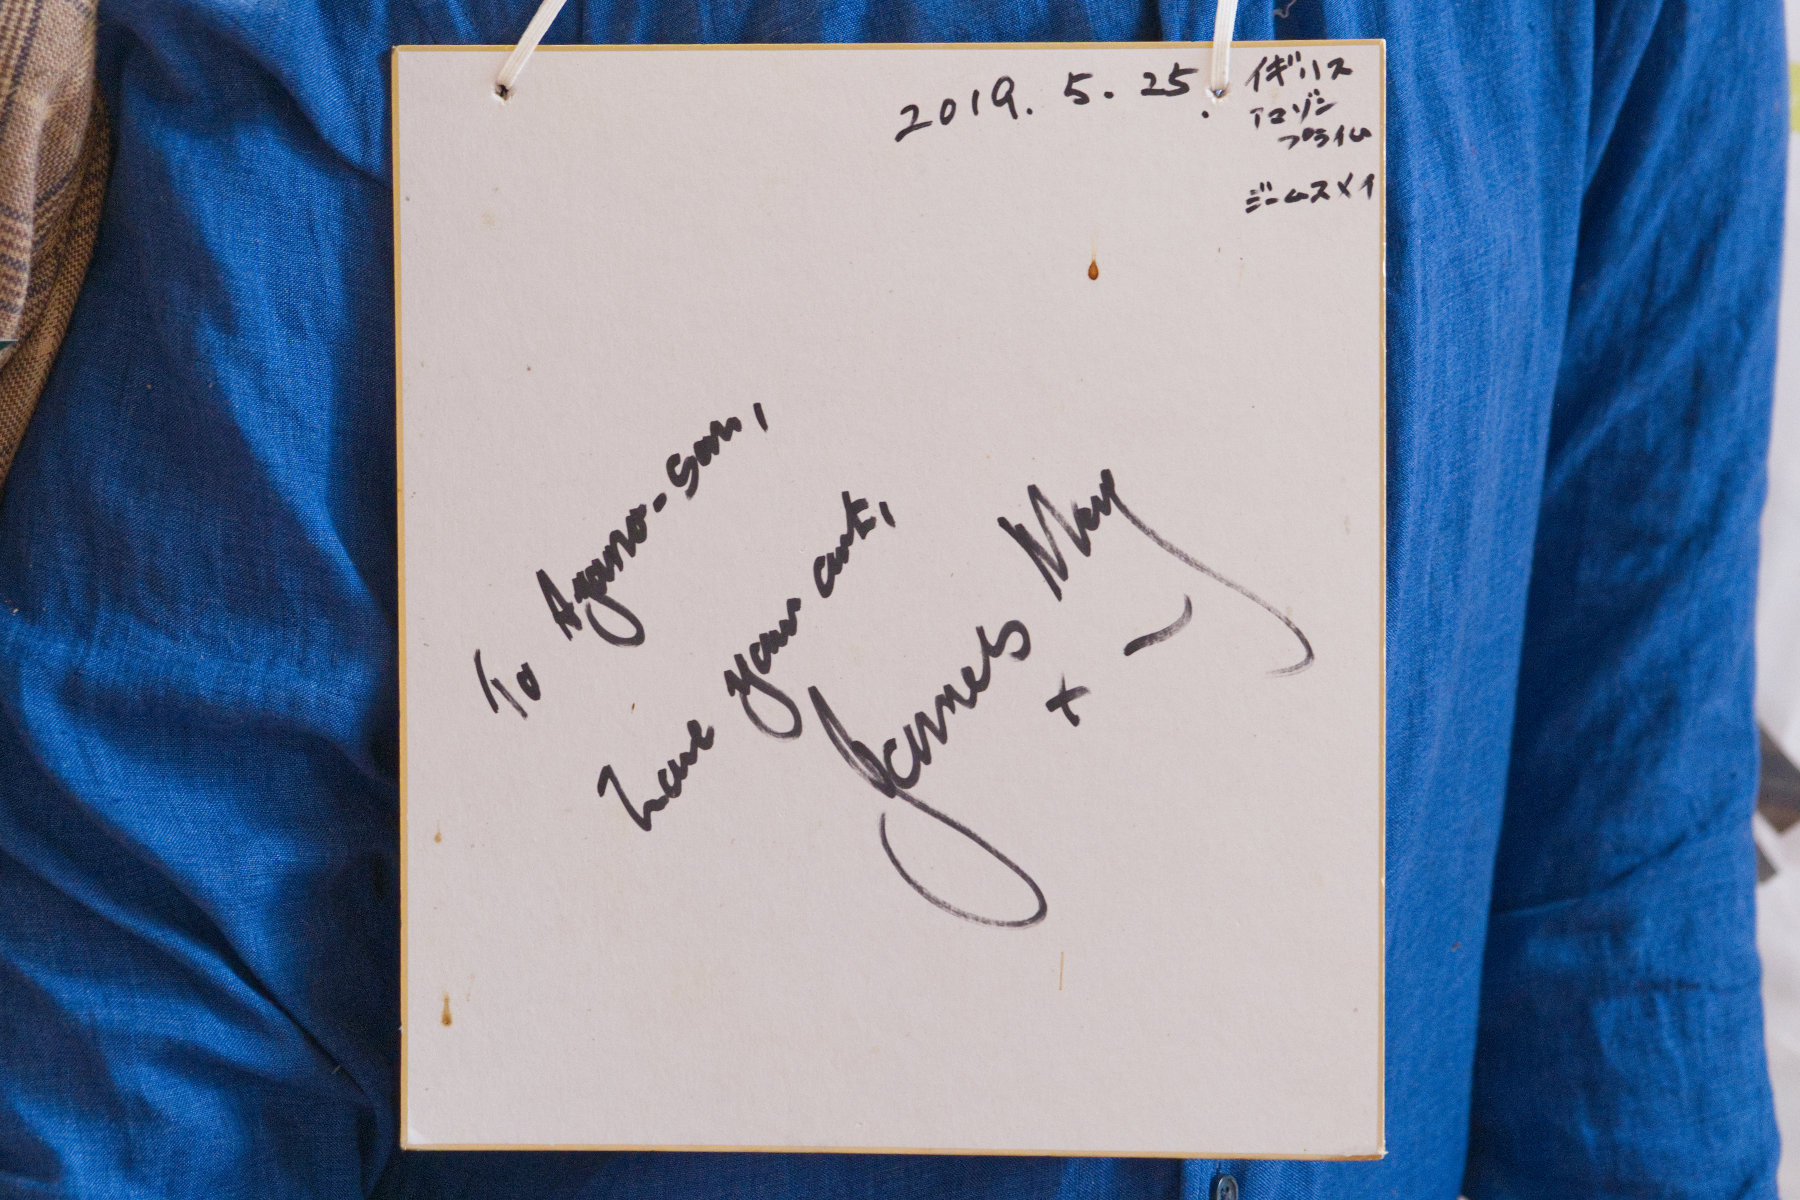 2019. 5. 25.
イギリス
アマゾン
プライム
ジームスメイ
To Ayano-san,
Love your art,
James May
+